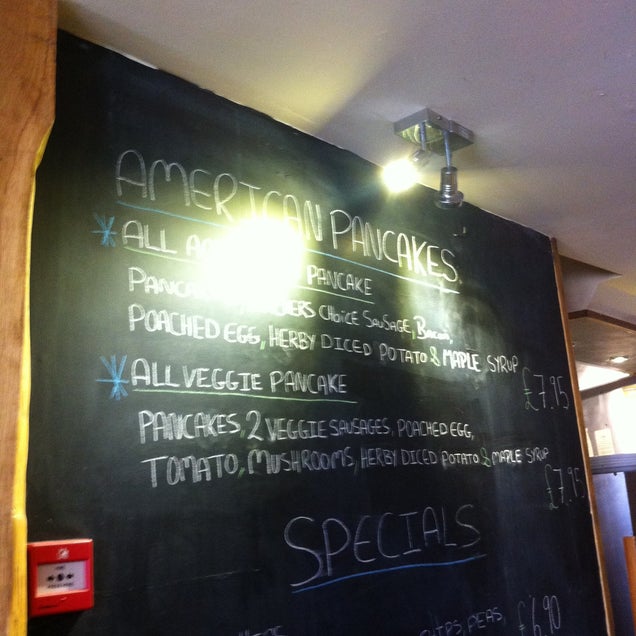 AMERICAN PANCAKES
ALL PANCAKE
CHOICE SAUSAGE, BACON,
POACHED EGG, HERBY DICED POTATO & MAPLE SYRUP
£7.95
ALL VEGGIE PANCAKE
PANCAKES, 2 VEGGIE SAUSAGES, POACHED EGG,
TOMATO, MUSHROOMS, HERBY DICED POTATO & MAPLE SYRUP
£7.95
SPECIALS
PEAS, £6.90